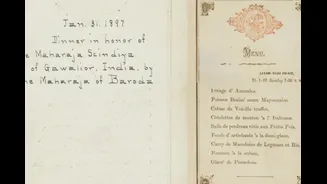 Jan. 31. 1897
Dinner in honor of
e Maharaja Scindiya
of Gwalior, India, by
he Maharaja of Baroda
MENU.
Potage d'Amandes
Poisson Braisé sauce Mayonnaise
Crême de Volaille truffée,
Côtelettes de mouton à l'Italienne
Salis de perdreau rôtis aux Petits Pois.
Fonds d'artichauts à la demi-glace.
Curry de Macédoine de Légumes et Riz.
Pommes à la crême,
Glacé de Pistaches.